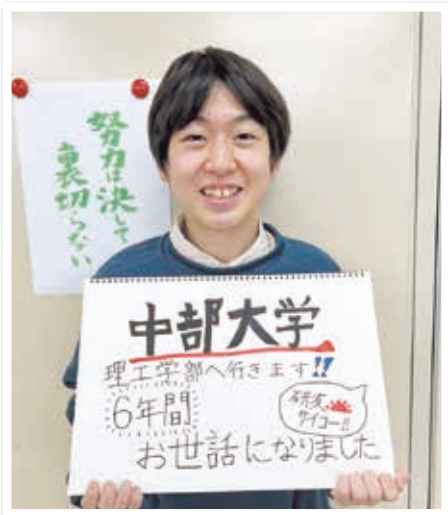 努力は決して
裏切らない
中部大学
理工学部へ行きます!!
6年間
サイコー!!
お世話になりました